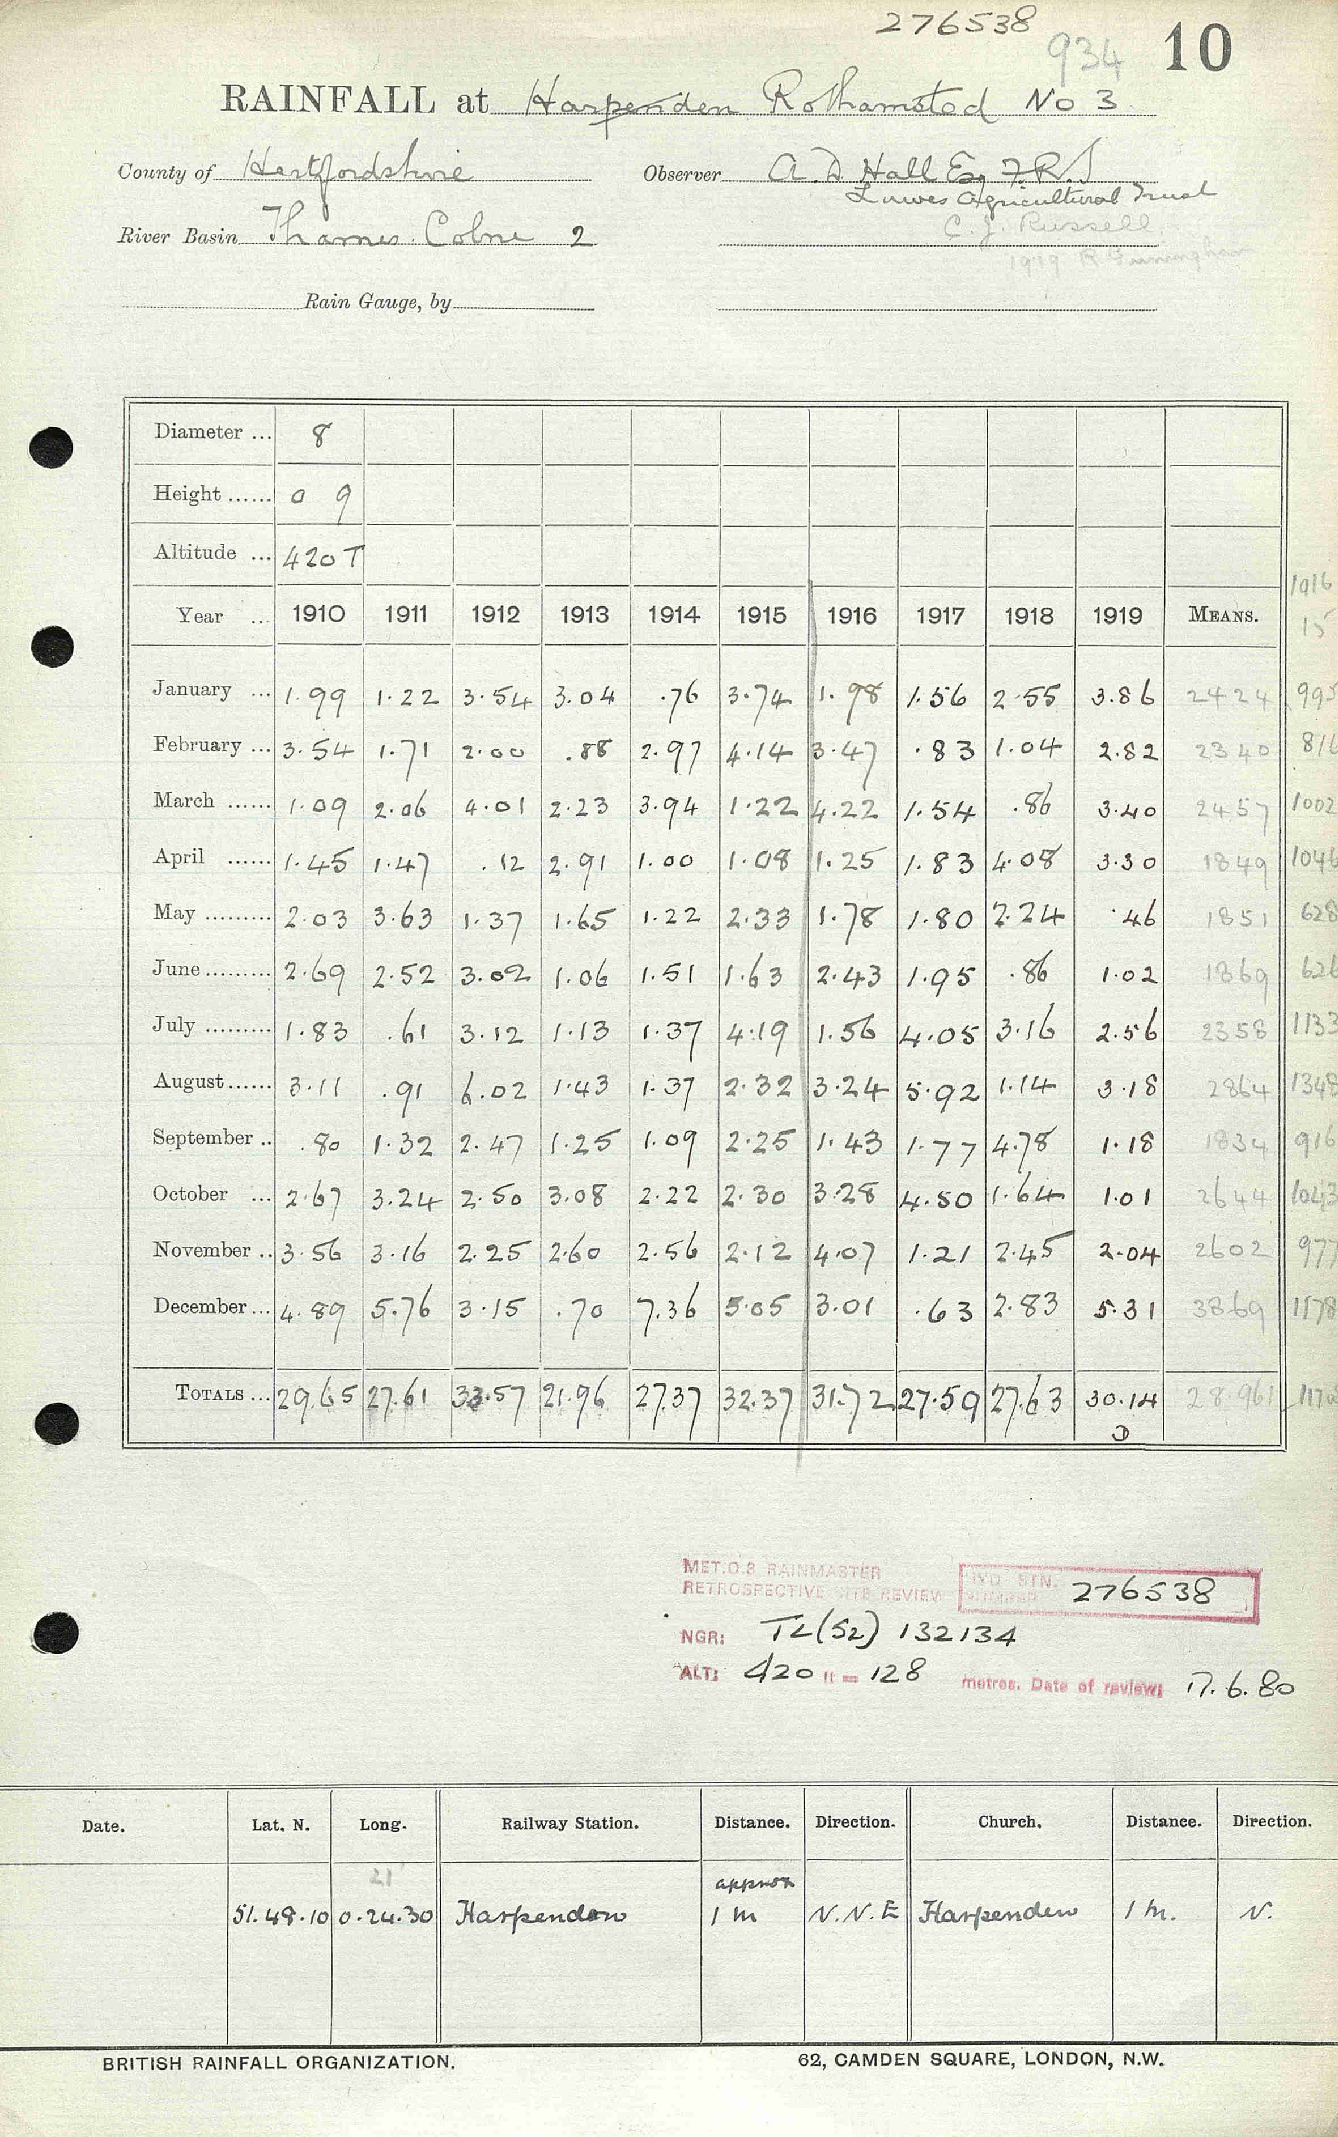 276538
934 10
RAINFALL at Harpenden Rothamsted No 3
County of Hertfordshire Observer A. D. Hall Esq F.R.S
Lawes Agricultural Trust
River Basin Thames. Colne 2 E. J. Russell
1919 R
Rain Gauge, by
Diameter ... 8
Height ...... 0 9
Altitude ... 420 T
1916
Year ... 1910 1911 1912 1913 1914 1915 1916 1917 1918 1919 MEANS. 15
January ... 1.99 1.22 3.54 3.04 .76 3.74 1.98 1.56 2.55 3.86 2424 995
February ... 3.54 1.71 2.00 .88 2.97 4.14 3.47 .83 1.04 2.82 2340 816
March ...... 1.09 2.06 4.01 2.23 3.94 1.22 4.22 1.54 .86 3.40 2457 1002
April ...... 1.45 1.47 .12 2.91 1.00 1.08 1.25 1.83 4.08 3.30 1849 1046
May ......... 2.03 3.63 1.37 1.65 1.22 2.33 1.78 1.80 2.24 .46 1851 628
June ......... 2.69 2.52 3.02 1.06 1.51 1.63 2.43 1.95 .86 1.02 1869 626
July ......... 1.83 .61 3.12 1.13 1.37 4.19 1.56 4.05 3.16 2.56 2358 1133
August ...... 3.11 .91 6.02 1.43 1.37 2.32 3.24 5.92 1.14 3.18 2864 1348
September .. .80 1.32 2.47 1.25 1.09 2.25 1.43 1.77 4.78 1.18 1834 916
October ... 2.67 3.24 2.50 3.08 2.22 2.30 3.28 4.50 1.64 1.01 2644 1043
November .. 3.56 3.16 2.25 2.60 2.56 2.12 4.07 1.21 2.45 2.04 2602 977
December ... 4.89 5.76 3.15 .70 7.36 5.05 3.01 .63 2.83 5.31 3869 1178
TOTALS ... 29.65 27.61 33.57 21.96 27.37 32.37 31.72 27.59 27.63 30.14 28.961
MET.O.8 RAINMASTER
RETROSPECTIVE REVIEW STN. 276538
NGR: TL(52) 132134
ALT: 420 ft = 128 metres. Date of review: 17.6.80
Date. Lat. N. Long. Railway Station. Distance. Direction. Church. Distance. Direction.
21
approx
51.48.10 0.24.30 Harpenden 1 m N.N.E Harpenden 1 m. N.
BRITISH RAINFALL ORGANIZATION. 62, CAMDEN SQUARE, LONDON, N.W.